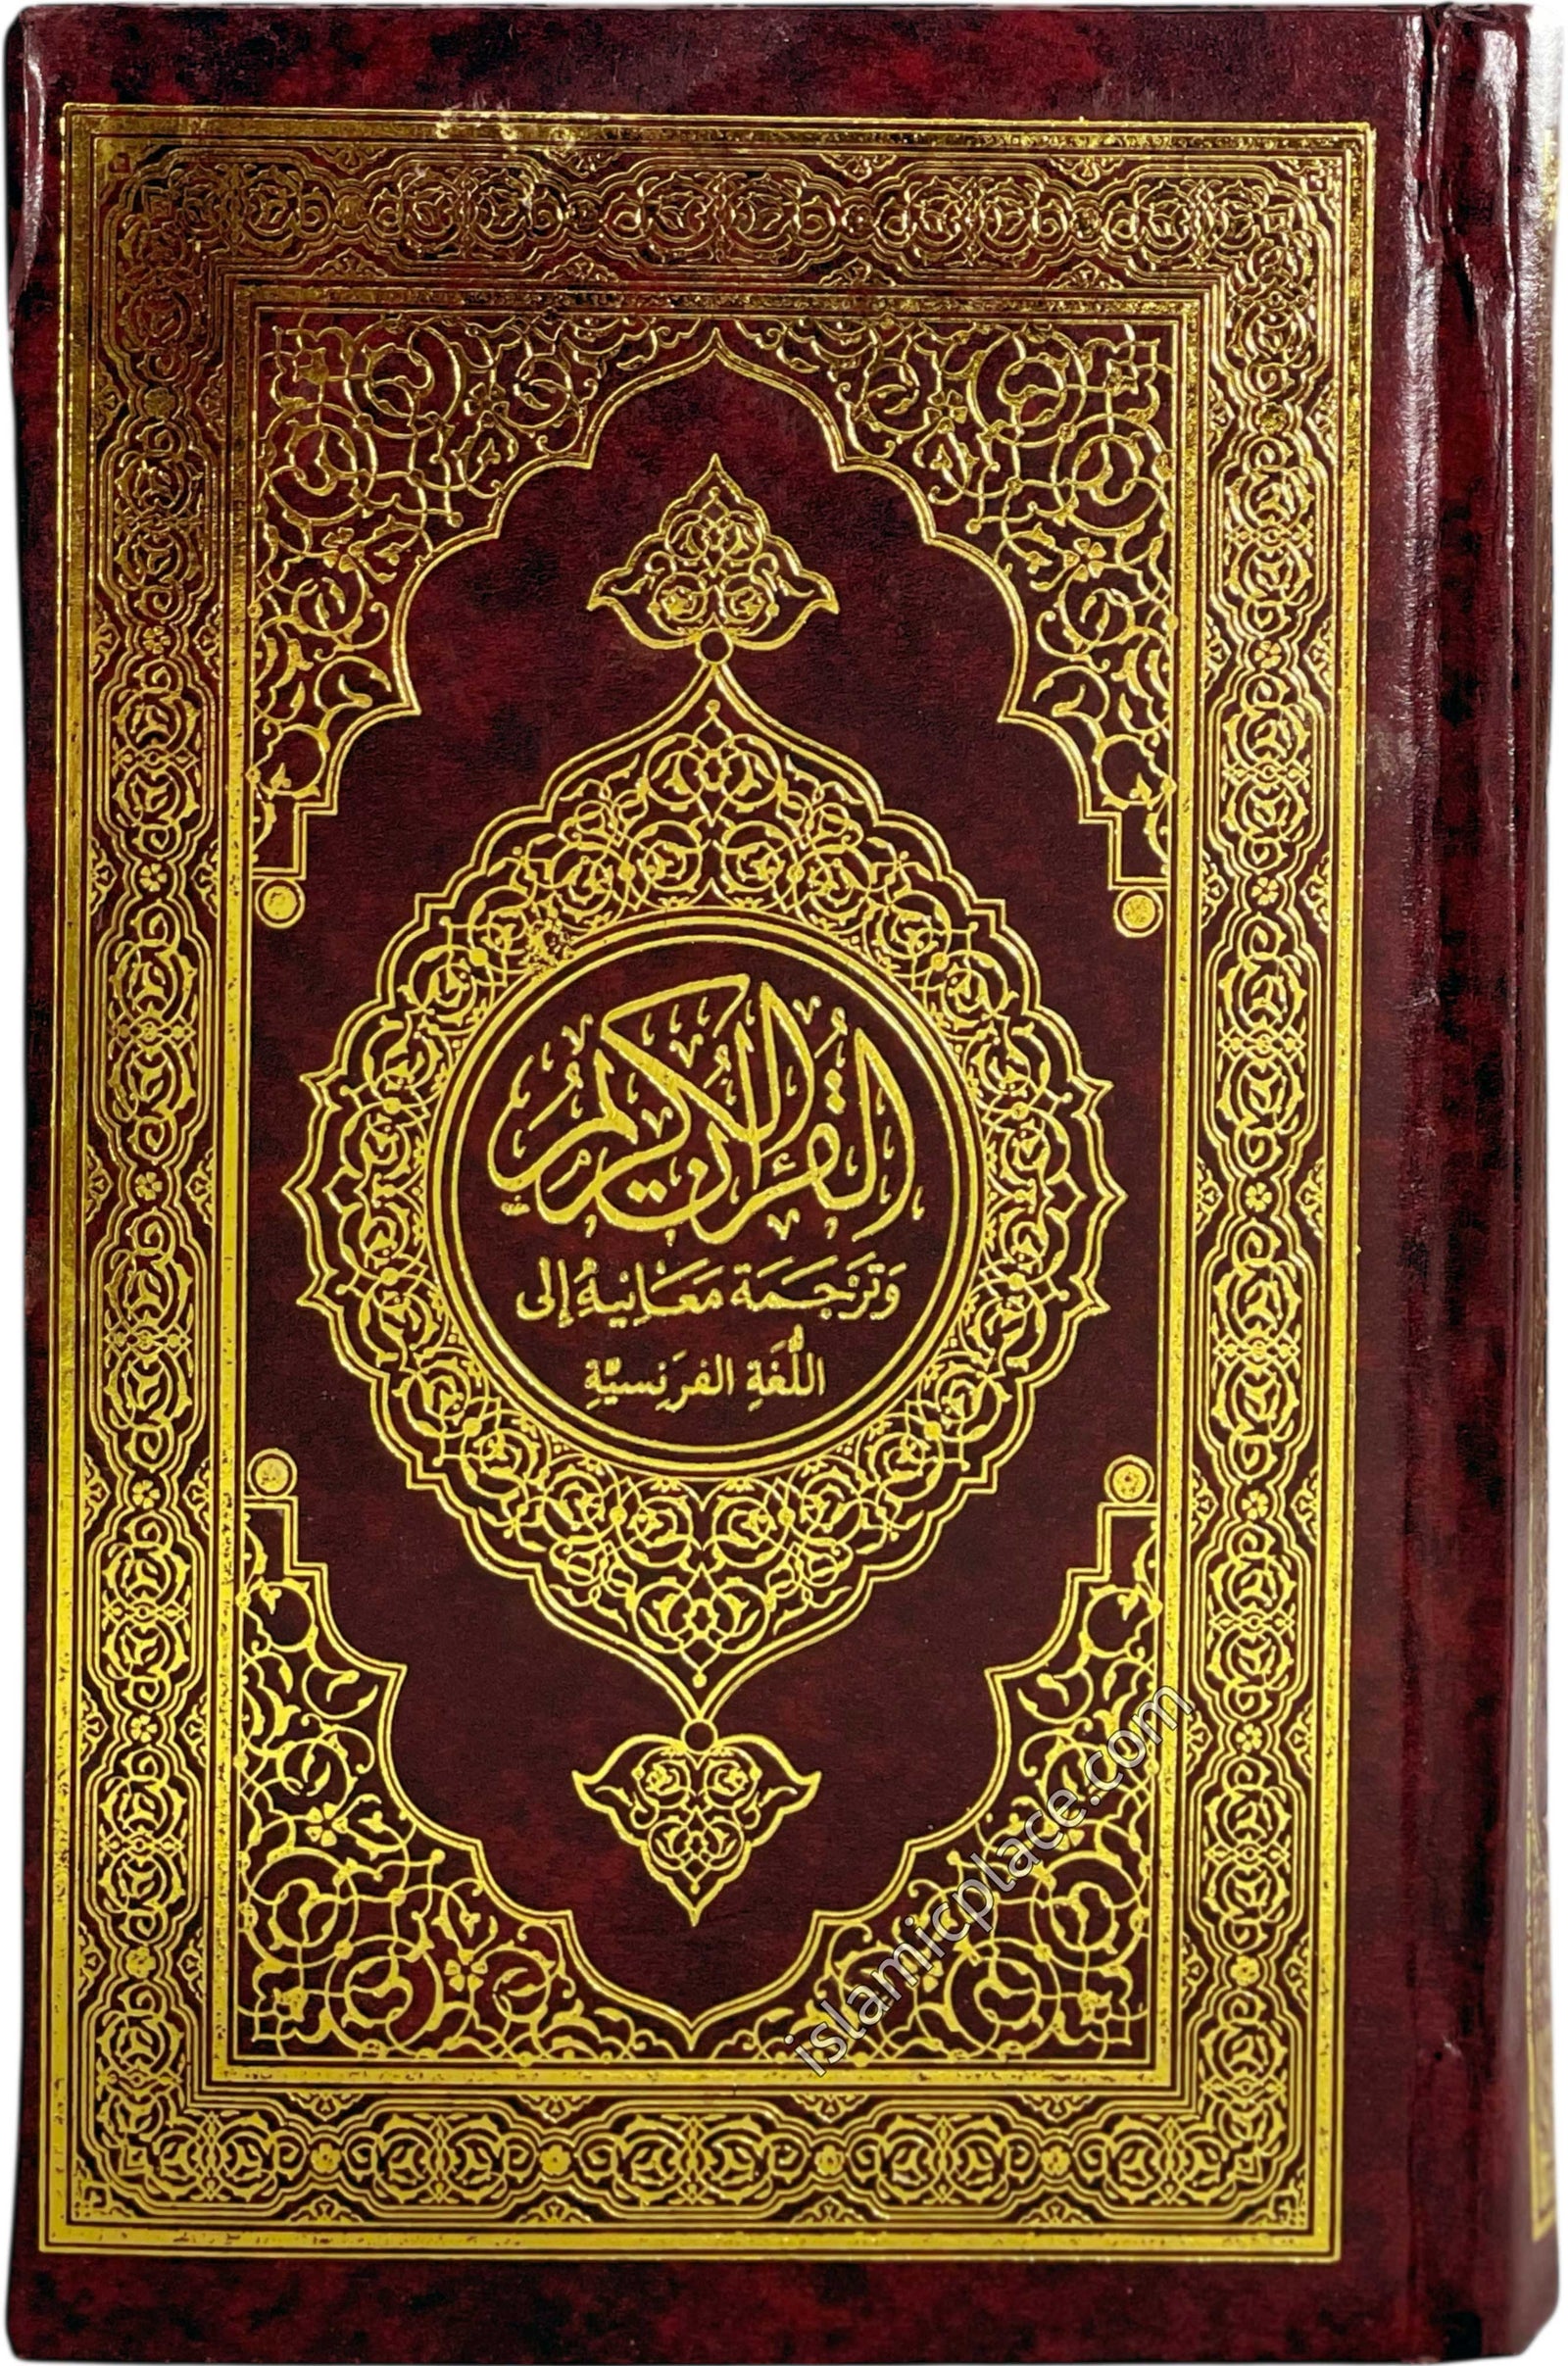 القرآن الكريم
وَتَرْجَمَة مَعَانِيهُ إلى
اللُّغَةِ الفرَنسيَّةِ
islamicplace.com